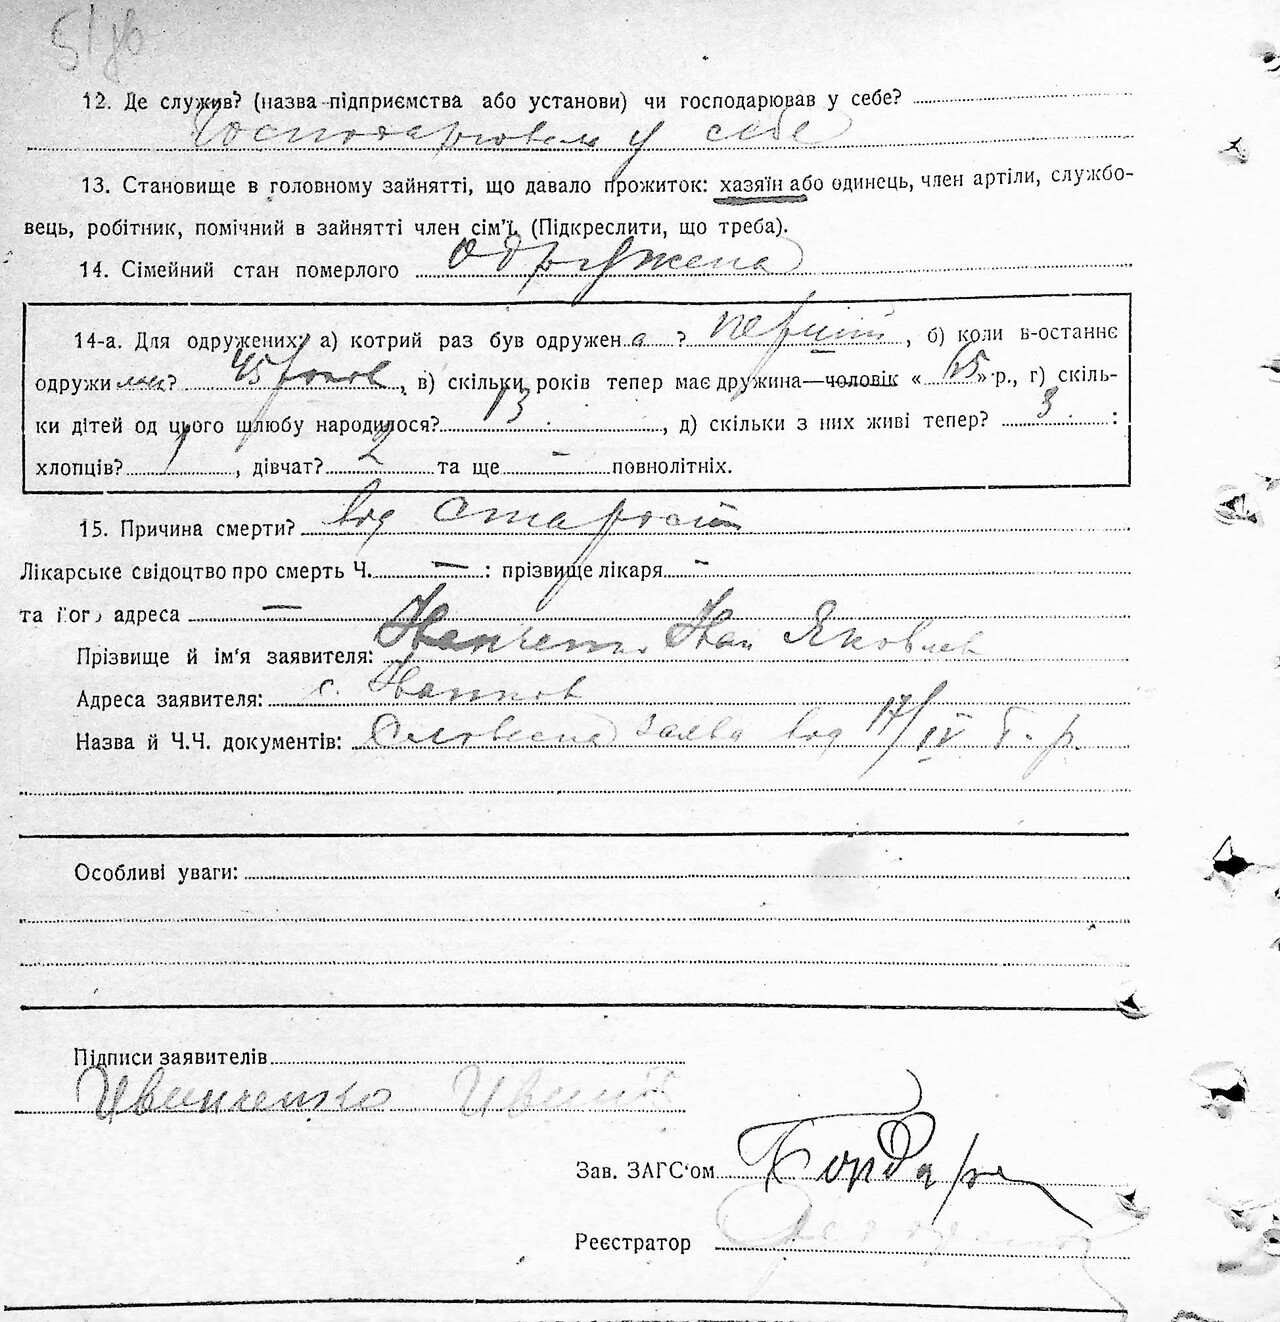 12. Де служив? (назва підприємства або установи) чи господарював у себе?
Господарювала у себе
13. Становище в головному зайнятті, що давало прожиток: хазяїн або одинець, член артіли, службо-
вець, робітник, помічний в зайнятті член сім'ї. (Підкреслити, що треба).
14. Сімейний стан померлого одружена
14-а. Для одружених: а) котрий раз був одружен а ? перший, б) коли в-останнє
одружи лась? 45 років, в) скільки років тепер має дружина—чоловік « 65 » р., г) скіль-
ки дітей од цього шлюбу народилося? 13, д) скільки з них живі тепер? 3 :
хлопців? 1, дівчат? 2 та ще — повнолітніх.
15. Причина смерти? від старости
Лікарське свідоцтво про смерть Ч. — : прізвище лікаря —
та його адреса —
Прізвище й ім'я заявителя: Іванченко Іван Яковлев
Адреса заявителя: с.
Назва й Ч.Ч. документів: Словесна заява від 17/IV б. р.
Особливі уваги:
Підписи заявителів
Иванченко Иван
Зав. ЗАГС'ом
Реєстратор